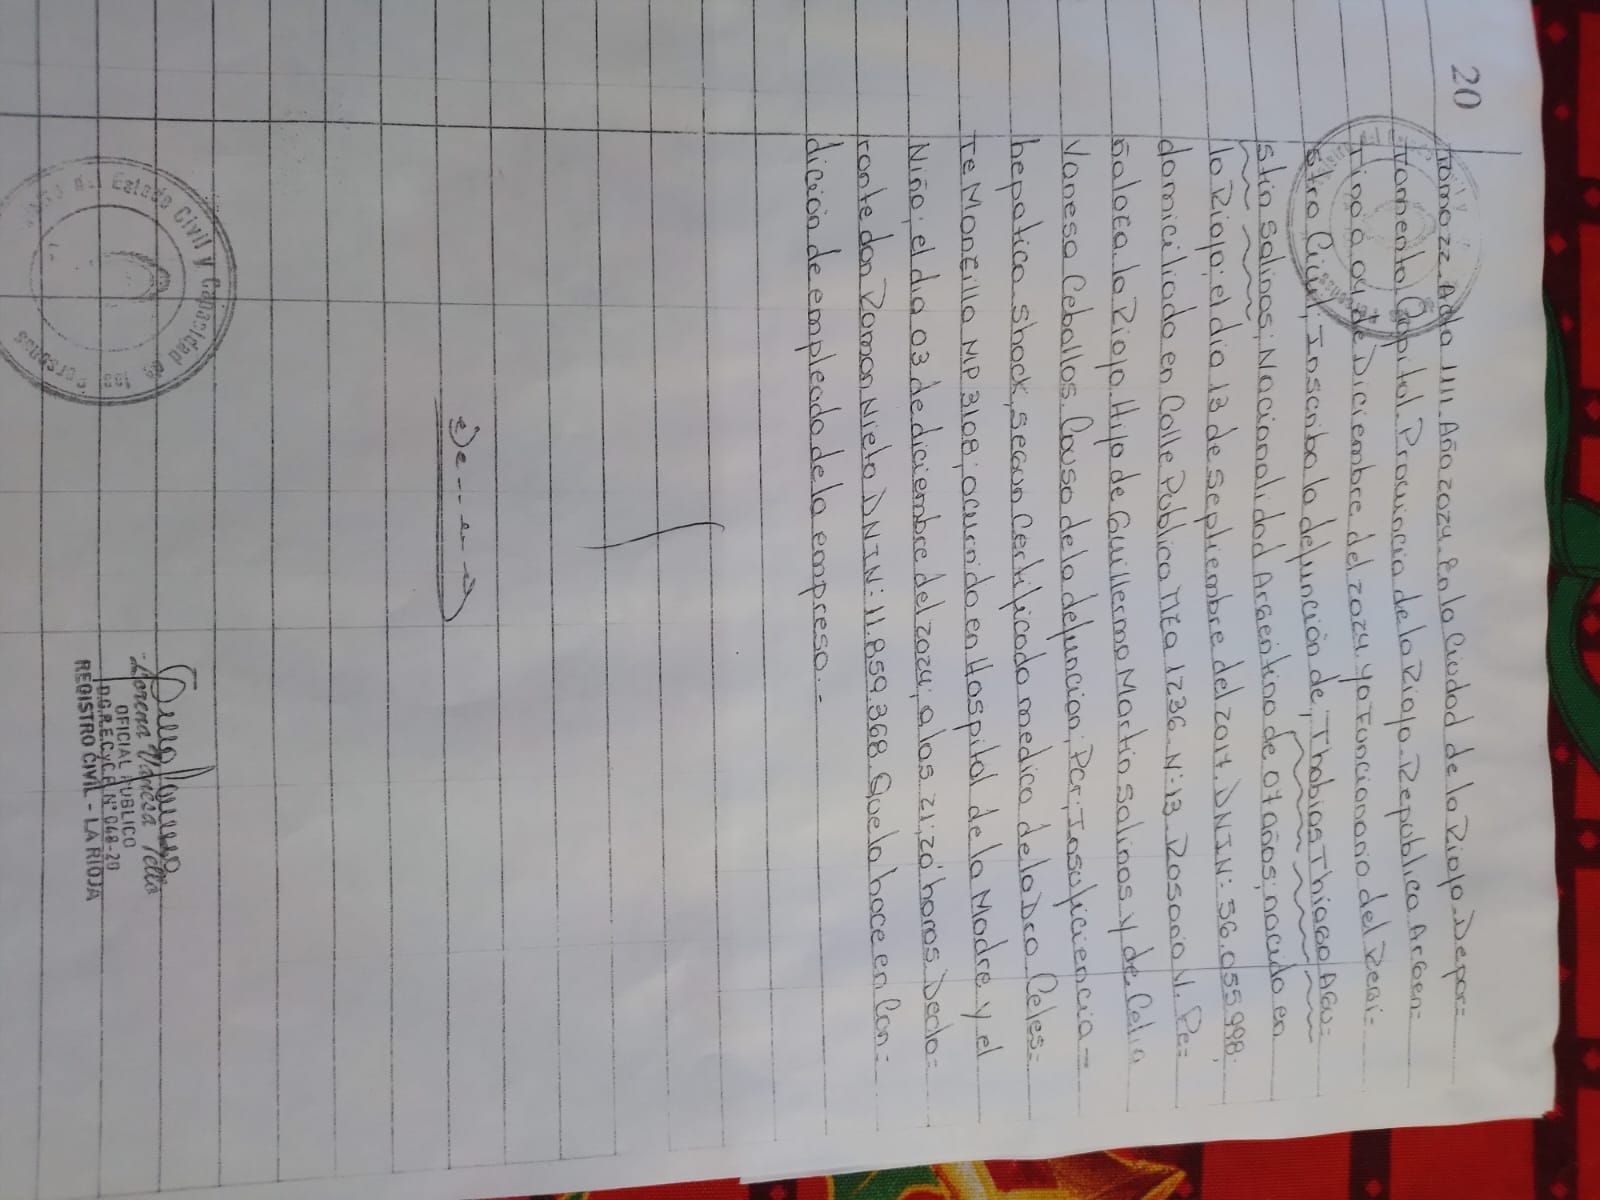 20
Tomo 22. Acta 1111. Año 2024. En la Ciudad de la Rioja. Depar=
tamento Capital. Provincia de la Rioja. Republica Argen=
tina a 04 de Diciembre del 2024 yo Funcionario del Regi=
stro Civil, Inscribo la defunción de, Thobias Thiago Agu=
stin Salinas; Nacionalidad Argentino de 07 años; nacido en
la Rioja; el dia 13 de septiembre del 2017. DNI N: 56.055.998.
domiciliado en Calle Publica Mza 1236. N: 13. Rosario V. Pe=
ñaloza. la Rioja. Hijo de Guillermo Martin Salinas y de. Celia
Vanesa Ceballos. Causa de la defuncion; Por; Insuficiencia -
hepatica. Shock, segun Certificado medico de la Dra. Celes=
te Mancilla MP 3108; ocurrido en Hospital de la Madre y el
Niño; el dia 03 de diciembre del 2024; a las 21;20' horas. Decla=
rante don Ramon Nieto DNI N: 11.859.368. Que lo hace en Con=
dición de empleado de la empresa. -
Registro del Estado Civil y Capacidad de las Personas
Lorena Vanesa Tello
OFICIAL PUBLICO
D.G.R.E.C.y C.P. N° 048-20
REGISTRO CIVIL - LA RIOJA